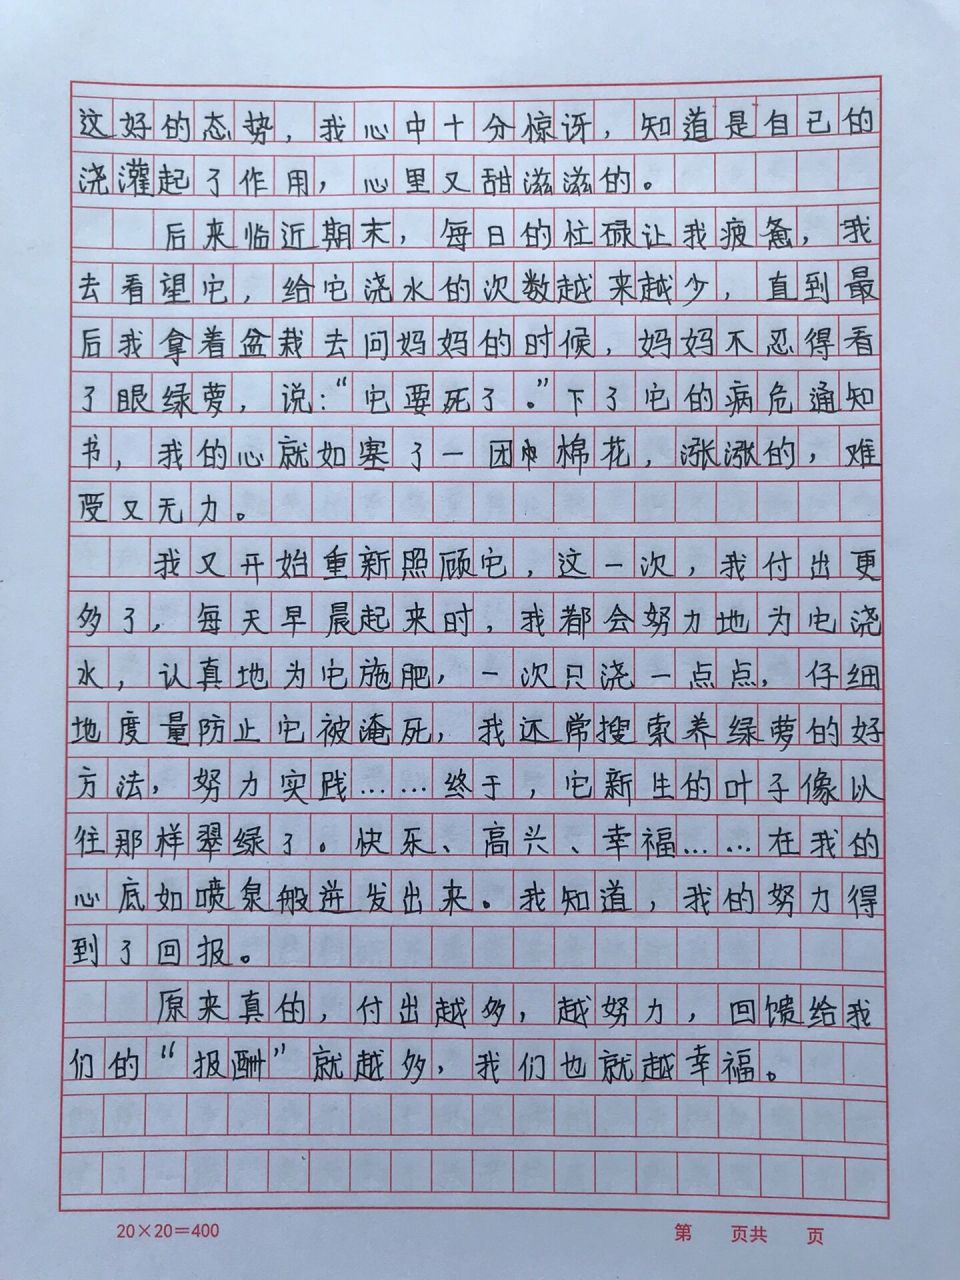 这好的态势，我心中十分惊讶，知道是自己的
浇灌起了作用，心里又甜滋滋的。
后来临近期末，每日的忙碌让我疲惫，我
去看望它，给它浇水的次数越来越少，直到最
后我拿着盆栽去问妈妈的时候，妈妈不忍得看
了眼绿萝，说：“它要死了。”下了它的病危通知
书，我的心就如塞了一团棉花，涨涨的，难
受又无力。
我又开始重新照顾它，这一次，我付出更
多了，每天早晨起来时，我都会努力地为它浇
水，认真地为它施肥，一次只浇一点点，仔细
地度量防止它被淹死，我还常搜索养绿萝的好
方法，努力实践……终于，它新生的叶子像以
往那样翠绿了。快乐、高兴、幸福……在我的
心底如喷泉般迸发出来。我知道，我的努力得
到了回报。
原来真的，付出越多，越努力，回馈给我
们的“报酬”就越多，我们也就越幸福。
20×20=400 第 页共 页